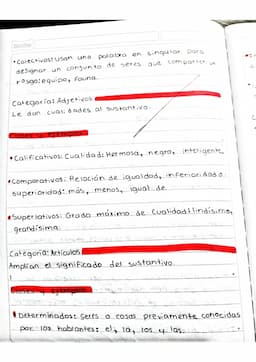 •Colectivos: Usan una palabra en singular para
designar un conjunto de seres que comparten un
rasgo: equipo, fauna.
Categoría: Adjetivos
Le dan cualidades al sustantivo.
Clases y ejemplos
•Calificativos: Cualidad: Hermosa, negra, inteligente
•Comparativos: Relación de igualdad, inferioridad o
superioridad: más, menos, igual de
•Superlativos: Grado máximo de cualidad: lindísima,
grandísima.
Categoría: Artículos
Amplían el significado del sustantivo
Clases y ejemplos
•Determinados: Seres o cosas previamente conocidas
por los hablantes: el, la, los y las.